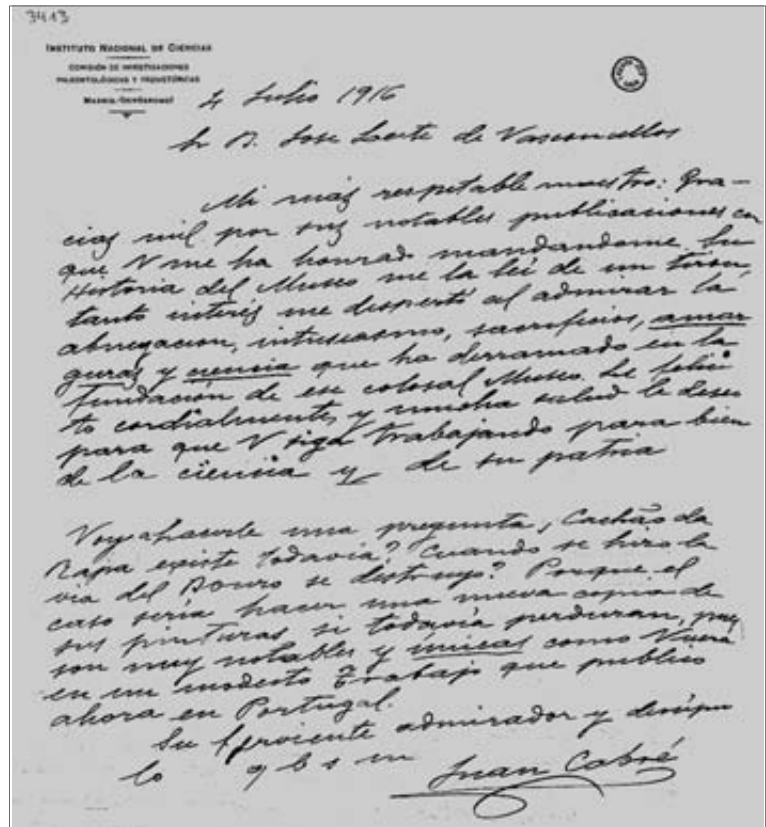 3413
INSTITUTO NACIONAL DE CIENCIAS
COMISIÓN DE INVESTIGACIONES
PALEONTOLÓGICAS Y PREHISTÓRICAS
MADRID.-(HIPÓDROMO)
4 Julio 1916
Sr D. Jose Leite de Vasconcellos
Mi más respetable maestro: Gra-
cias mil por sus notables publicaciones con
que V me ha honrado mandandome. Su
Historia del Museo me la leí de un tiron,
tanto interés me despertó al admirar la
abnegacion, intusiasmo, sacrificios, amar
guras y ciencia que ha derramado en la
fundación de ese colosal Museo. Le felici
to cordialmente, y mucha salud le deseo
para que V siga trabajando para bien
de la ciencia y de su patria
Voy a hacerle una pregunta, Cachão da
Rapa existe todavia? Cuando se hizo la
via del Douro se destruyo? Porque el
caso sería hacer una nueva copia de
sus pinturas si todavía perduran, pues
son muy notables y únicas como V verá
en un modesto trabajo que publico
ahora en Portugal.
Su ferviente admirador y discipu
lo q b s m
Juan Cabré